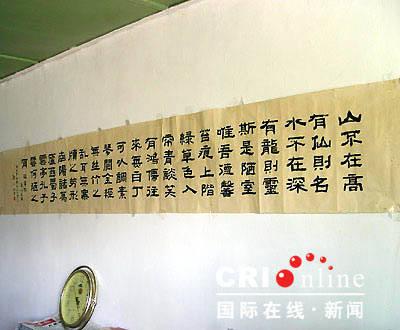 山不在高
有仙則名
水不在深
有龍則靈
斯是陋室
唯吾德馨
苔痕上階
綠草色入
帘青談笑
有鴻儒往
來無白丁
可以調素
琴閱金經
無絲竹之
亂耳無案
牘之勞形
南陽諸葛
廬西蜀子
雲亭孔子
雲何陋之
有
CRI Online
国际在线·新闻